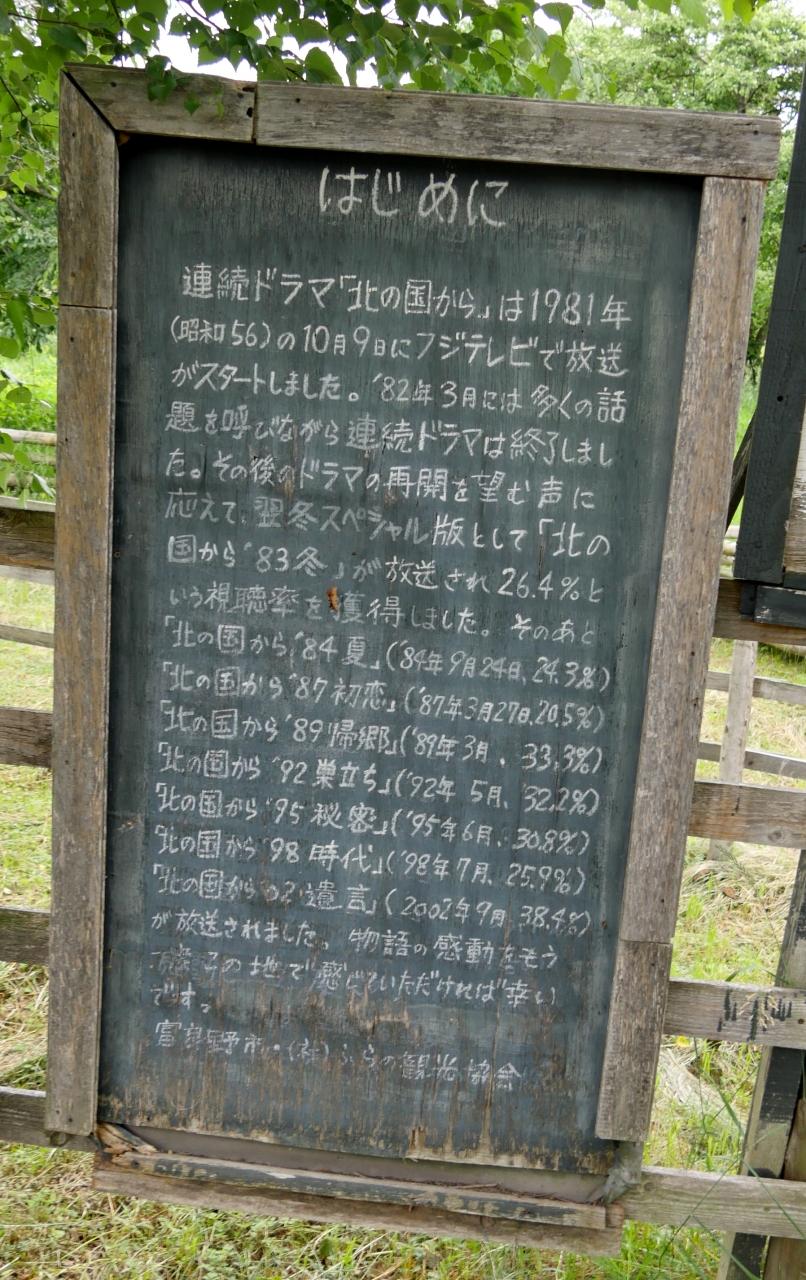 はじめに
連続ドラマ「北の国から」は1981年
(昭和56)の10月9日にフジテレビで放送
がスタートしました。'82年3月には多くの話
題を呼びながら連続ドラマは終了しまし
た。その後のドラマの再開を望む声に
応えて、翌冬スペシャル版として「北の
国から'83冬」が放送され26.4%と
いう視聴率を獲得しました。そのあと
「北の国から'84夏」('84年9月24日、24.3%)
「北の国から'87初恋」('87年3月27日、20.5%)
「北の国から'89帰郷」('89年3月、33.3%)
「北の国から'92巣立ち」('92年5月、32.2%)
「北の国から'95秘密」('95年6月、30.8%)
「北の国から'98時代」('98年7月、25.9%)
「北の国から'02遺言」(2002年9月、38.4%)
が放送されました。物語の感動をそう
の地で感じていただければ幸い
です。
富良野市・(社)ふらの観光協会